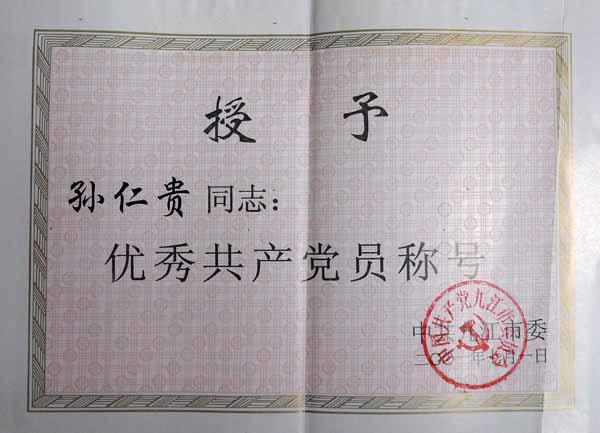 授予
孙仁贵同志：
优秀共产党员称号
中共九江市委
月一日
中国共产党九江市委员会